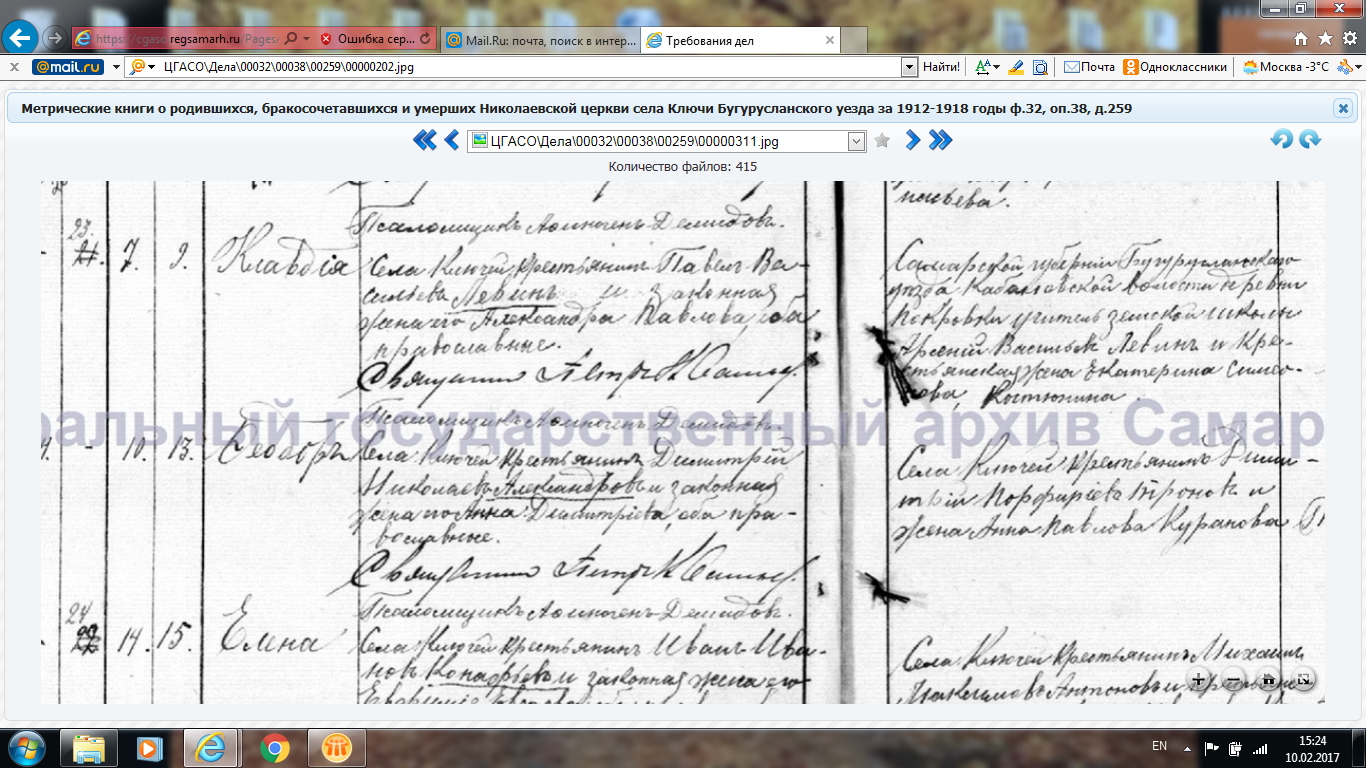 https://cgaso.regsamarh.ru/Pages/
Ошибка сер...
Mail.Ru: почта, поиск в интер...
Требования дел
@mail.ru
ЦГАСО\Дела\00032\00038\00259\00000202.jpg
Найти!
Почта
Одноклассники
Москва -3°C
Метрические книги о родившихся, бракосочетавшихся и умерших Николаевской церкви села Ключи Бугурусланского уезда за 1912-1918 годы ф.32, оп.38, д.259
ЦГАСО\Дела\00032\00038\00259\00000311.jpg
Количество файлов: 415
Псаломщикъ Аѳиногенъ Демидовъ.
23.
7. 9. Клавдія
Села Ключей, крестьянинъ Павелъ Ва-
сильевъ Левинъ и законная
жена его Александра Павлова, оба
православные.
Священникъ Петръ
Самарской губерніи Бугурусланскаго
уѣзда Кабановской волости деревни
Покровки учитель земской школы
Арсеній Васильевъ Левинъ и кре-
стьянская жена Екатерина Симео-
нова, Костюнина.
ральный государственный архив Самар
Псаломщикъ Аѳиногенъ Демидовъ.
- 10. 13. Ѳеодоръ
Села Ключей крестьянинъ Димитрій
Николаевъ Александровъ и законная
жена его Анна Димитріева, оба пра-
вославные.
Священникъ Петръ
Села Ключей крестьянинъ Дими-
трій Порфиріевъ Троновъ и
жена Анна Павлова Куранова
Псаломщикъ Аѳиногенъ Демидовъ.
24
14. 15. Елена
Села Ключей крестьянинъ Иванъ Ива-
новъ и законная жена его
Села Ключей крестьянинъ Михаилъ
Максимовъ Антоновъ и
EN
15:24
10.02.2017